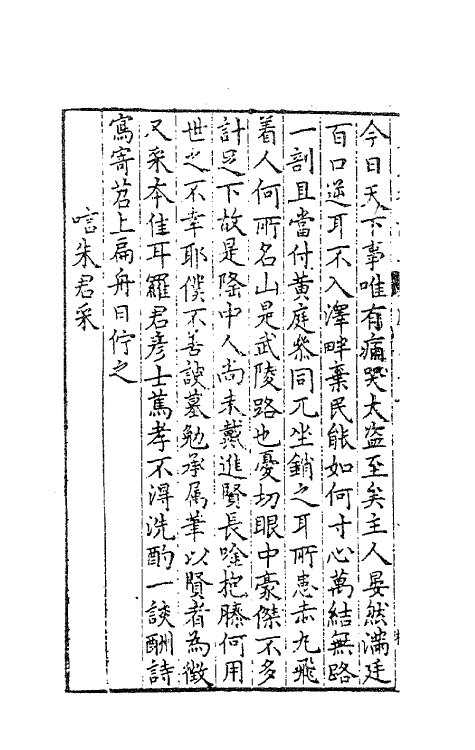 今日天下事唯有痛哭大盗至矣主人晏然滿廷
百口逆耳不入澤畔棄民能如何寸心萬結無路
一剖且當付黃庭叅同兀坐銷之耳所患赤丸飛
着人何所名山是武陵路也憂切眼中豪傑不多
計足下故是隆中人尚未戴進賢長唫抱膝何用
世之不幸耶僕不善諛墓勉承属筆以賢者為徵
又采本佳耳羅君彥士篤孝不淂洗酌一談酬詩
寫寄苕上扁舟日佇之
唁朱君采